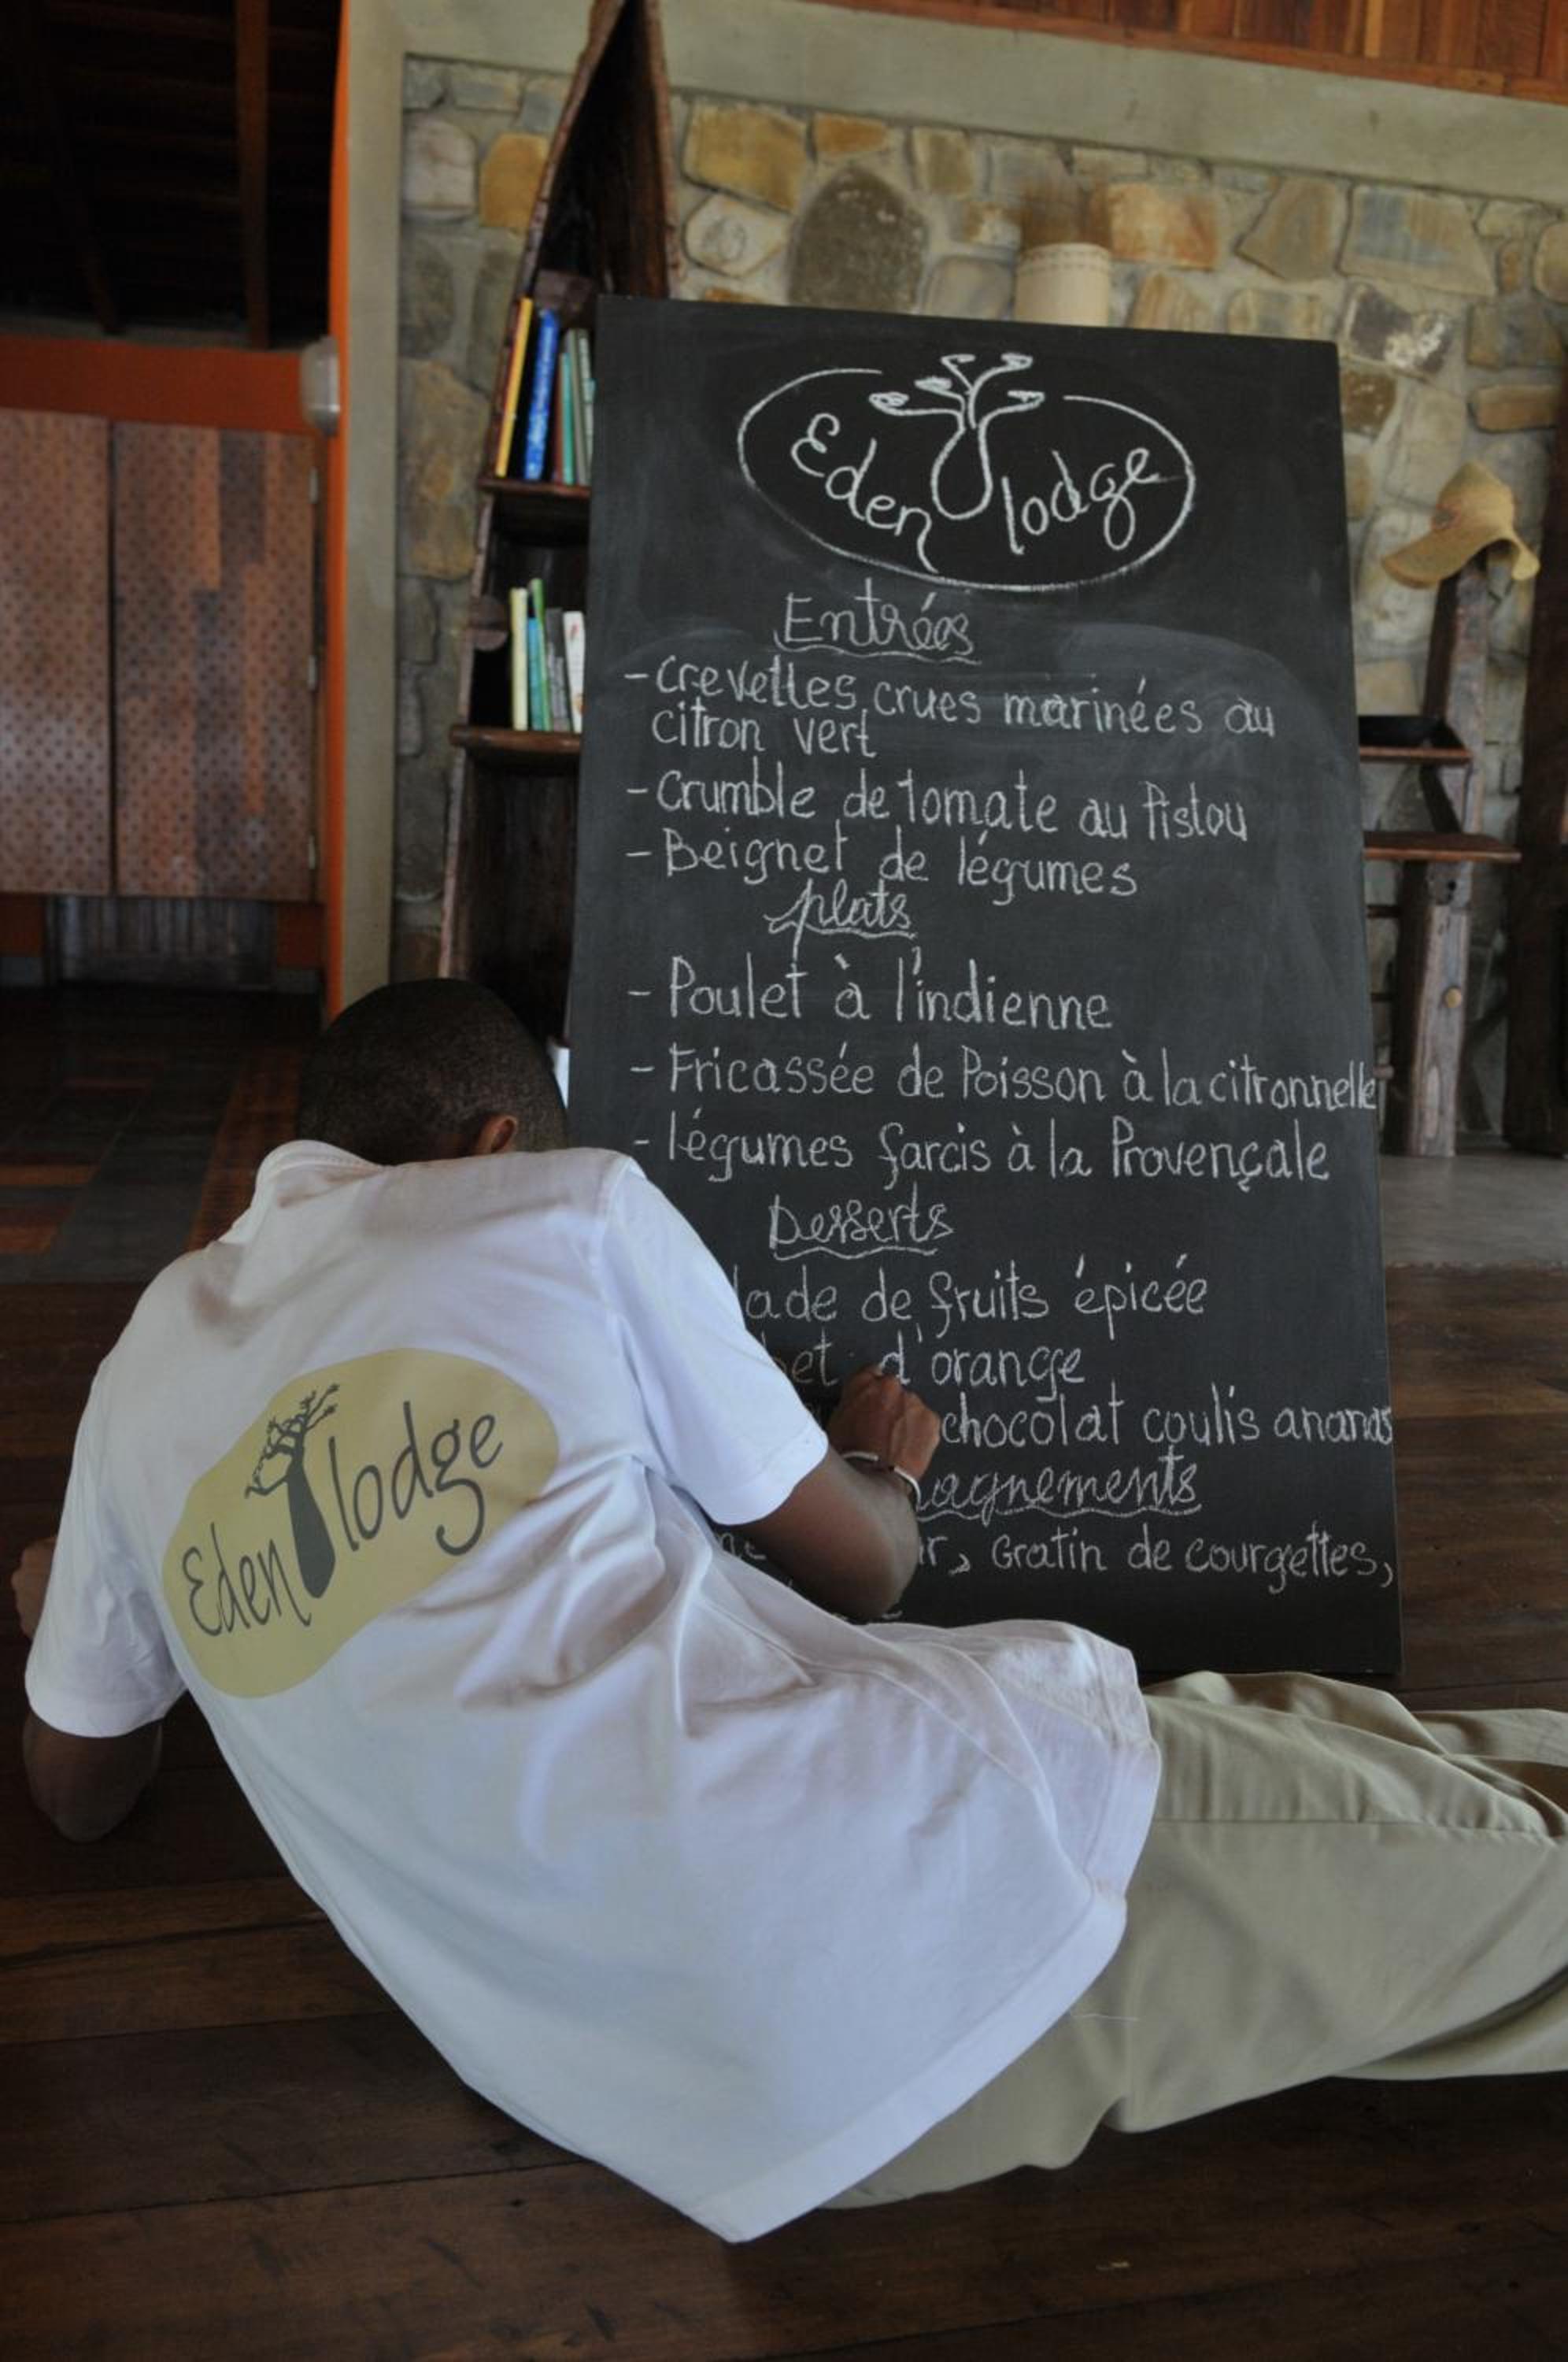 Eden lodge
Entrées
- Crevettes crues marinées au
citron vert
- Crumble de tomate au Pistou
- Beignet de légumes
plats
- Poulet à l'indienne
- Fricassée de Poisson à la citronnelle
- légumes farcis à la Provençale
Desserts
lade de fruits épicée
bet d'orange
chocolat coulis ananas
agnements
Gratin de courgettes,
Eden lodge